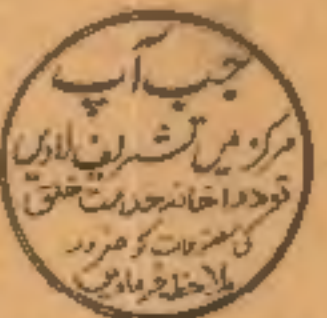 جب آپ
مرکز میں تشریف لاویں
تو دواخانہ خدمت خلق
کی مفردات کو ضرور
ملاحظہ فرماویں